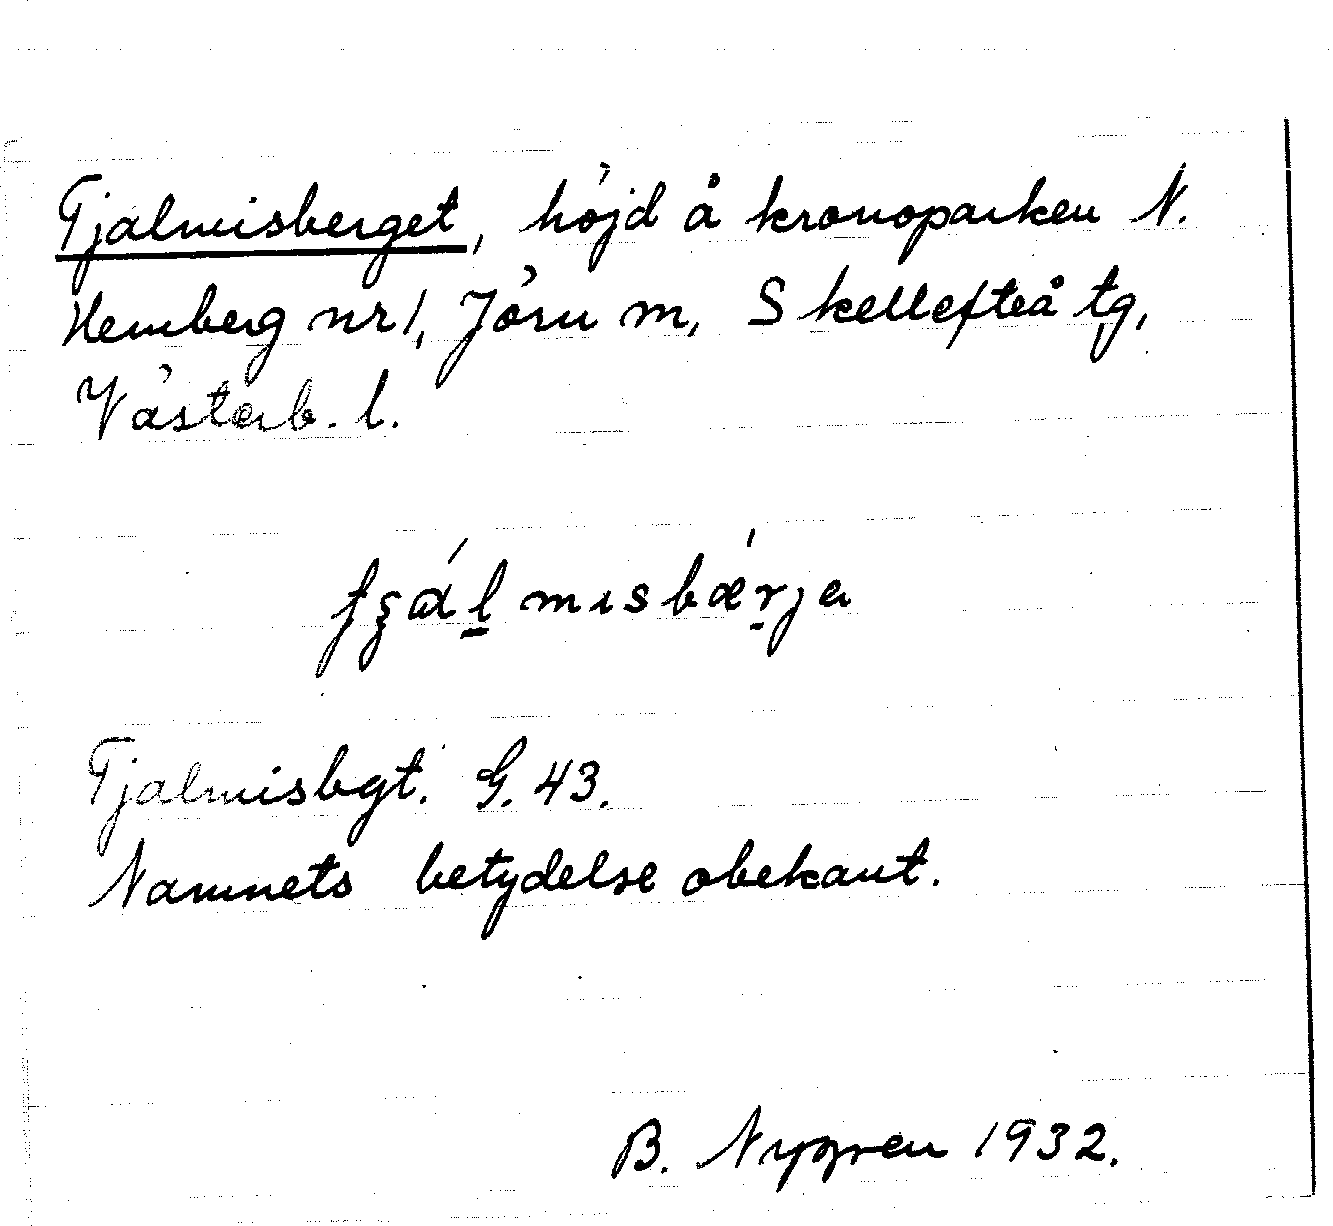 Tjalmisberget, höjd å kronoparken N.
Hemberg nr 1, Jörn m, Skellefteå tg,
Västerb. l.
Tjalmisbgt. G. 43.
Namnets betydelse obekant.
B. Nygren 1932.